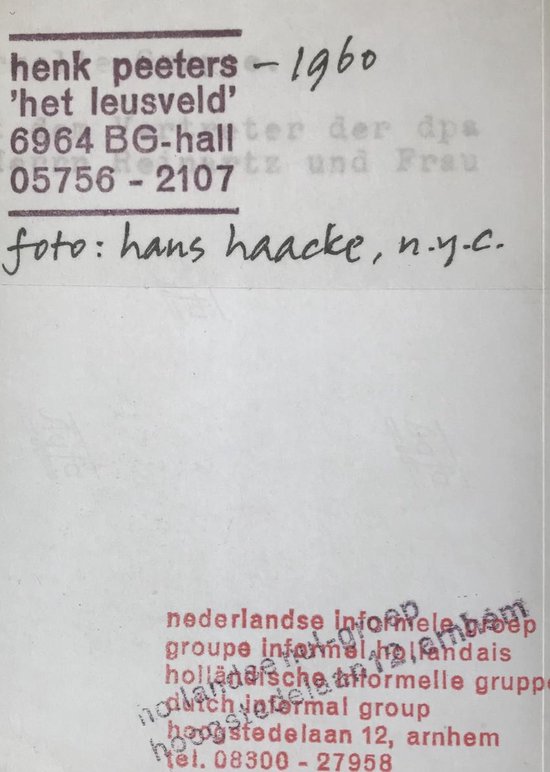 henk peeters – 1960
'het leusveld'
6964 BG-hall
05756 - 2107
der dpa
und Frau
foto: hans haacke, n.y.c.
nederlandse informele groep
groupe informel hollandais
holländische informelle gruppe
dutch informal group
hoogstedelaan 12, arnhem
tel. 08300 - 27958
hollandse nul-groep
hoogstedelaan 12, arnhem